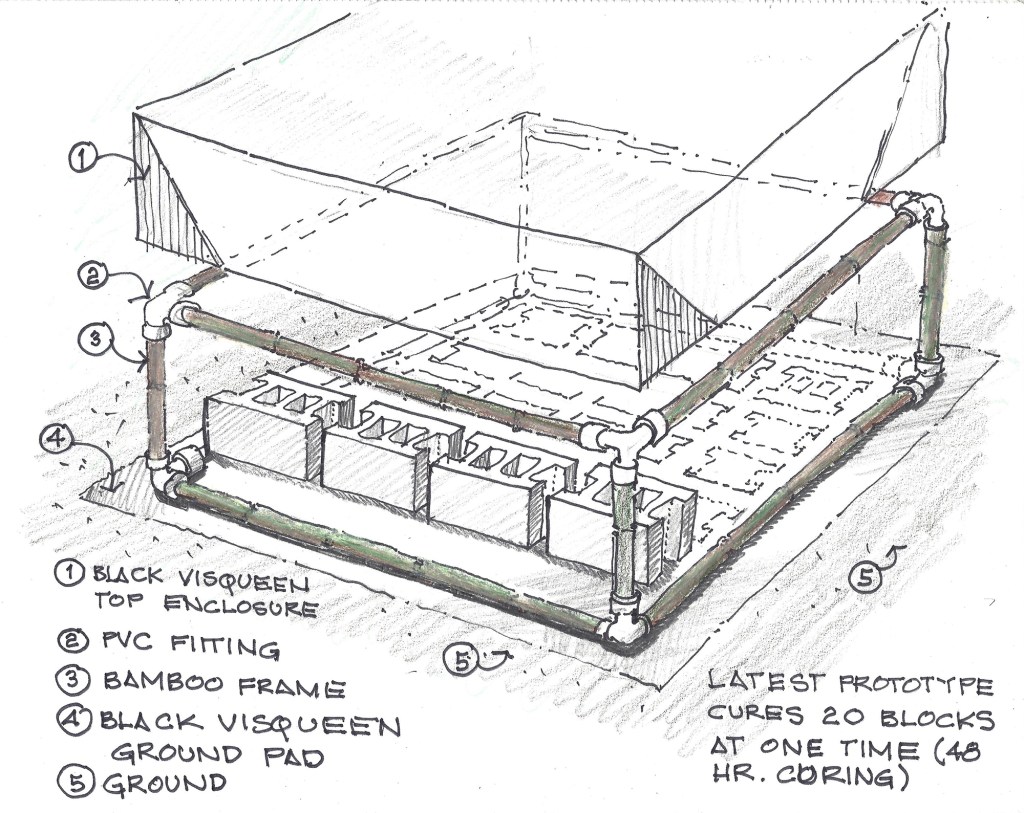 1
2
3
4
5
5
1 BLACK VISQUEEN
TOP ENCLOSURE
2 PVC FITTING
3 BAMBOO FRAME
4 BLACK VISQUEEN
GROUND PAD
5 GROUND
LATEST PROTOTYPE
CURES 20 BLOCKS
AT ONE TIME (48
HR. CURING)